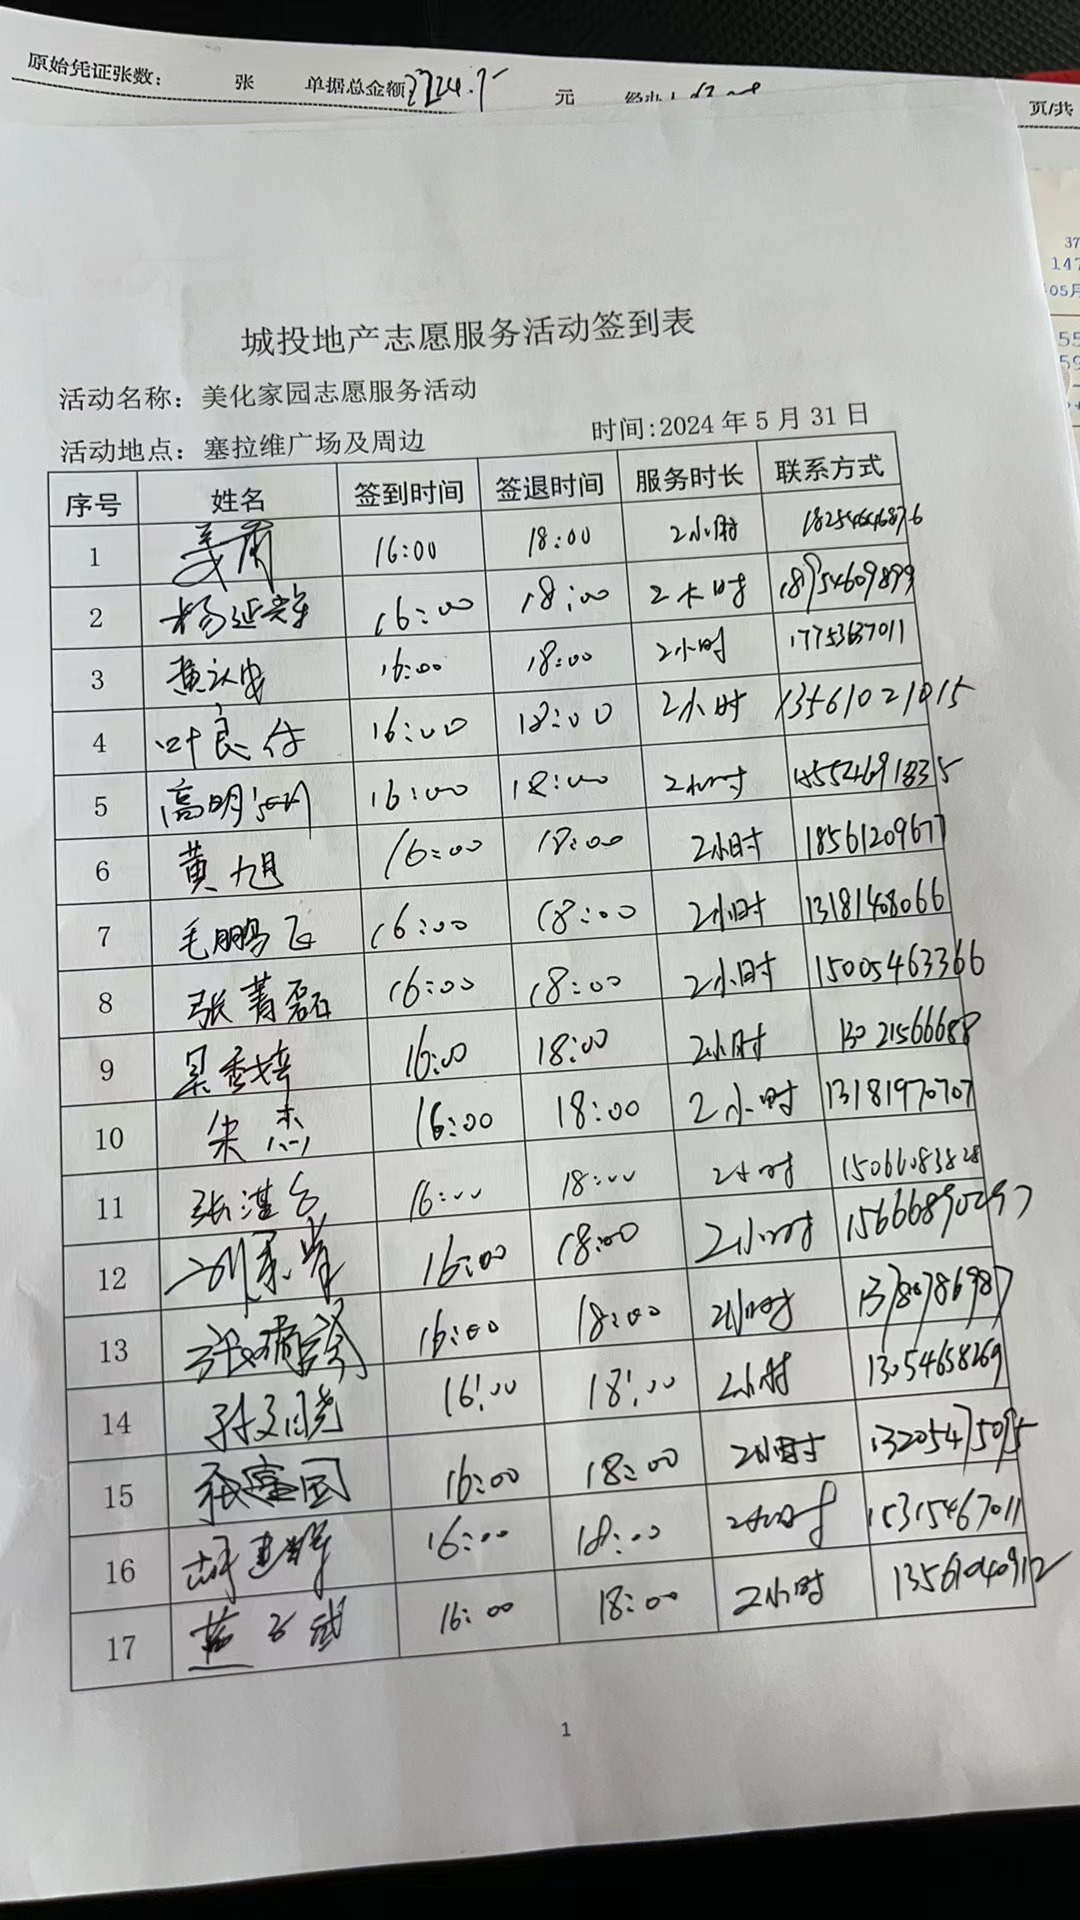 原始凭证张数： 张 单据总金额 元
页/共
37
147
05月
城投地产志愿服务活动签到表
活动名称：美化家园志愿服务活动
活动地点：塞拉维广场及周边 时间:2024年5月31日
序号 姓名 签到时间 签退时间 服务时长 联系方式
1 16:00 18:00 2小时
2 16:00 18:00 2小时 18954609899
3 16:00 18:00 2小时
4 叶良 16:00 18:00 2小时 13561021015
5 高明 16:00 18:00 2小时
6 黄旭 16:00 18:00 2小时 18561209677
7 毛鹏飞 16:00 18:00 2小时 13181408066
8 张菁磊 16:00 18:00 2小时 15005463366
9 吴秀婷 16:00 18:00 2小时 13021566688
10 宋杰 16:00 18:00 2小时 13181970707
11 张湛 16:00 18:00 2小时 15066083828
12 16:00 18:00 2小时 15666890297
13 16:00 18:00 2小时 13780786987
14 孙文晓 16:00 18:00 2小时 13054658269
15 张富国 16:00 18:00 2小时 13205475095
16 胡建辉 16:00 18:00 2小时 15315467011
17 16:00 18:00 2小时 13561040912
1